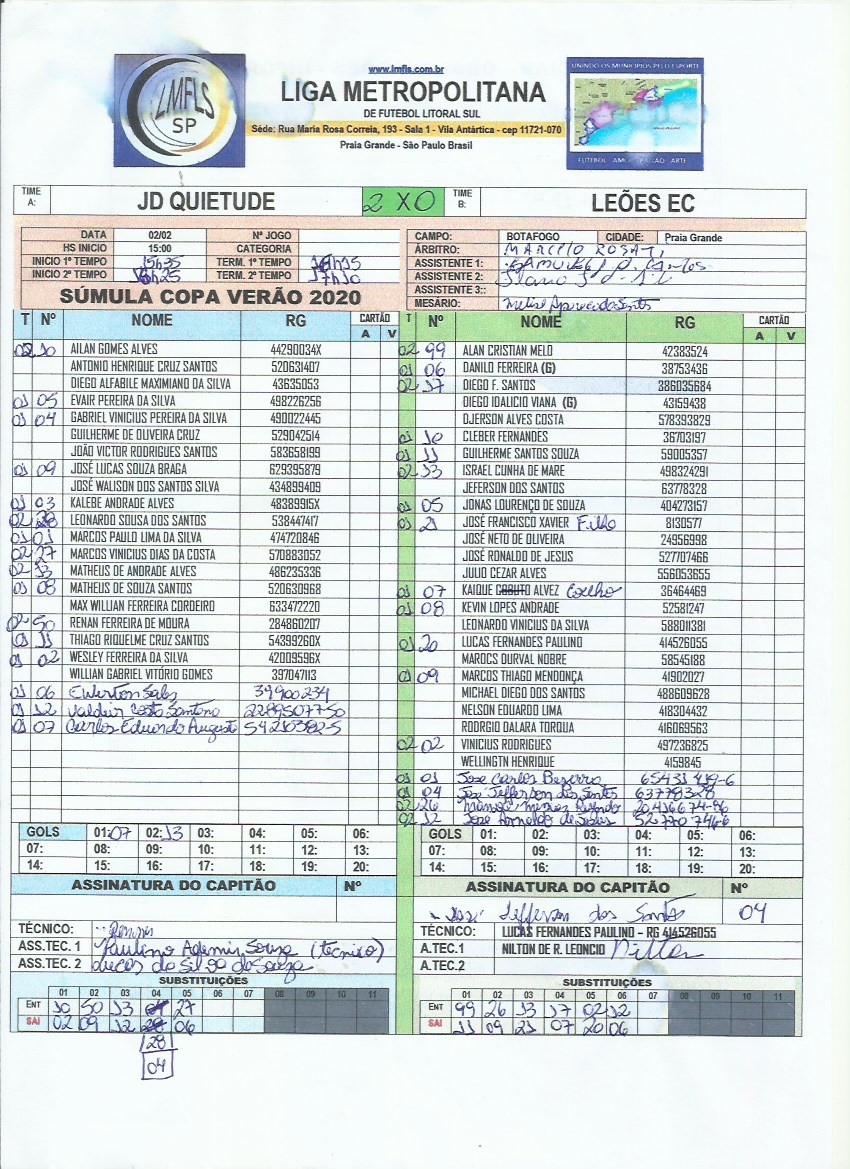 LMFLS
SP
www.lmfls.com.br
LIGA METROPOLITANA
DE FUTEBOL LITORAL SUL
Séde: Rua Maria Rosa Correia, 193 - Sala 1 - Vila Antártica - cep 11721-070
Praia Grande - São Paulo Brasil
UNINDO OS MUNICIPIOS PELO ESPORTE
FUTEBOL AMOR PAIXÃO ARTE
TIME A: JD QUIETUDE 2 X 0 TIME B: LEÕES EC
DATA 02/02 Nº JOGO
HS INICIO 15:00 CATEGORIA
INICIO 1º TEMPO 15h35 TERM. 1º TEMPO 16h15
INICIO 2º TEMPO 16h25 TERM. 2º TEMPO 17h10
SÚMULA COPA VERÃO 2020
CAMPO: BOTAFOGO CIDADE: Praia Grande
ÁRBITRO: MARCELO ROSATI
ASSISTENTE 1:
ASSISTENTE 2:
ASSISTENTE 3::
MESÁRIO:
T Nº NOME RG CARTÃO A V
02 10 AILAN GOMES ALVES 44290034X
ANTONIO HENRIQUE CRUZ SANTOS 520631407
DIEGO ALFABILE MAXIMIANO DA SILVA 43635053
01 05 EVAIR PEREIRA DA SILVA 498226256
01 04 GABRIEL VINICIUS PEREIRA DA SILVA 490022445
GUILHERME DE OLIVEIRA CRUZ 529042514
JOÃO VICTOR RODRIGUES SANTOS 583658199
01 09 JOSÉ LUCAS SOUZA BRAGA 629395879
JOSÉ WALISON DOS SANTOS SILVA 434899409
01 03 KALEBE ANDRADE ALVES 48389915X
02 28 LEONARDO SOUSA DOS SANTOS 538447417
01 01 MARCOS PAULO LIMA DA SILVA 474720846
02 27 MARCOS VINICIUS DIAS DA COSTA 570883052
02 13 MATHEUS DE ANDRADE ALVES 486235336
01 08 MATHEUS DE SOUZA SANTOS 520630968
MAX WILLIAN FERREIRA CORDEIRO 633472220
02 50 RENAN FERREIRA DE MOURA 284860207
01 11 THIAGO RIQUELME CRUZ SANTOS 54399260X
01 02 WESLEY FERREIRA DA SILVA 42009596X
WILLIAN GABRIEL VITÓRIO GOMES 397047113
01 06 Ewerton Sales 39900234
01 12 Valdeir Costa Santana 2289507750
01 07 Carlos Eduardo Augusto 542103825
T Nº NOME RG CARTÃO A V
02 99 ALAN CRISTIAN MELO 42383524
01 06 DANILO FERREIRA (G) 38753436
02 17 DIEGO F. SANTOS 386035684
DIEGO IDALICIO VIANA (G) 43159438
DJERSON ALVES COSTA 578393829
01 10 CLEBER FERNANDES 36703197
01 11 GUILHERME SANTOS SOUZA 59005357
02 33 ISRAEL CUNHA DE MARE 498324291
JEFERSON DOS SANTOS 63778328
01 05 JONAS LOURENÇO DE SOUZA 404273157
01 21 JOSÉ FRANCISCO XAVIER Filho 8130577
JOSÉ NETO DE OLIVEIRA 24956998
JOSÉ RONALDO DE JESUS 527707466
JULIO CEZAR ALVES 556053655
01 07 KAIQUE COBUTO ALVEZ Coelho 36464469
01 08 KEVIN LOPES ANDRADE 52581247
LEONARDO VINICIUS DA SILVA 588011381
01 20 LUCAS FERNANDES PAULINO 414526055
MAROCS DURVAL NOBRE 58545188
01 09 MARCOS THIAGO MENDONÇA 41902027
MICHAEL DIEGO DOS SANTOS 488609628
NELSON EDUARDO LIMA 418304432
RODRGIO DALARA TORQUA 416069563
02 02 VINICIUS RODRIGUES 497236825
WELLINGTN HENRIQUE 4159845
01 01 Jose Carlos Bezerra
01 04 Jose Jefferson dos Santos 63779328
02 26
02 12 Jose Arnaldo de
GOLS 01: 07 02: 13 03: 04: 05: 06:
07: 08: 09: 10: 11: 12: 13:
14: 15: 16: 17: 18: 19: 20:
GOLS 01: 02: 03: 04: 05: 06:
07: 08: 09: 10: 11: 12: 13:
14: 15: 16: 17: 18: 19: 20:
ASSINATURA DO CAPITÃO Nº
TÉCNICO:
ASS.TEC. 1 Paulino Ademir Souza (tecnico)
ASS.TEC. 2 Lucas da Silva de Souza
ASSINATURA DO CAPITÃO Nº
José Jefferson dos Santos 04
TÉCNICO: LUCAS FERNANDES PAULINO - RG 414526055
A.TEC.1 NILTON DE R. LEONCIO Nilton
A.TEC.2
SUBSTITUIÇÕES
01 02 03 04 05 06 07 08 09 10 11
ENT 10 50 13 27
SAI 02 09 12 06
28
04
SUBSTITUIÇÕES
01 02 03 04 05 06 07 08 09 10 11
ENT 99 26 33 17 02 12
SAI 11 09 21 07 20 06